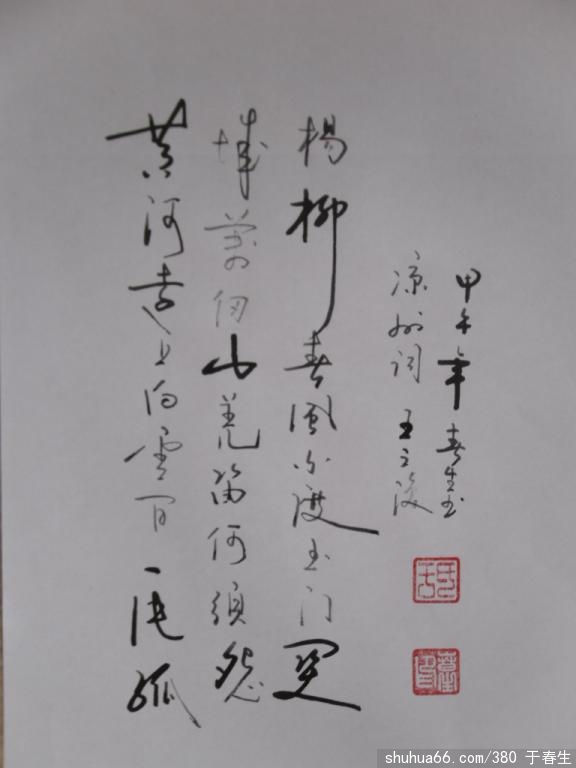 黄河遠上白雲间一片孤
城萬仞山羌笛何須怨
楊柳春風不度玉门関
凉州词 王之涣
甲午年春生书
shuhua66.com/380 于春生